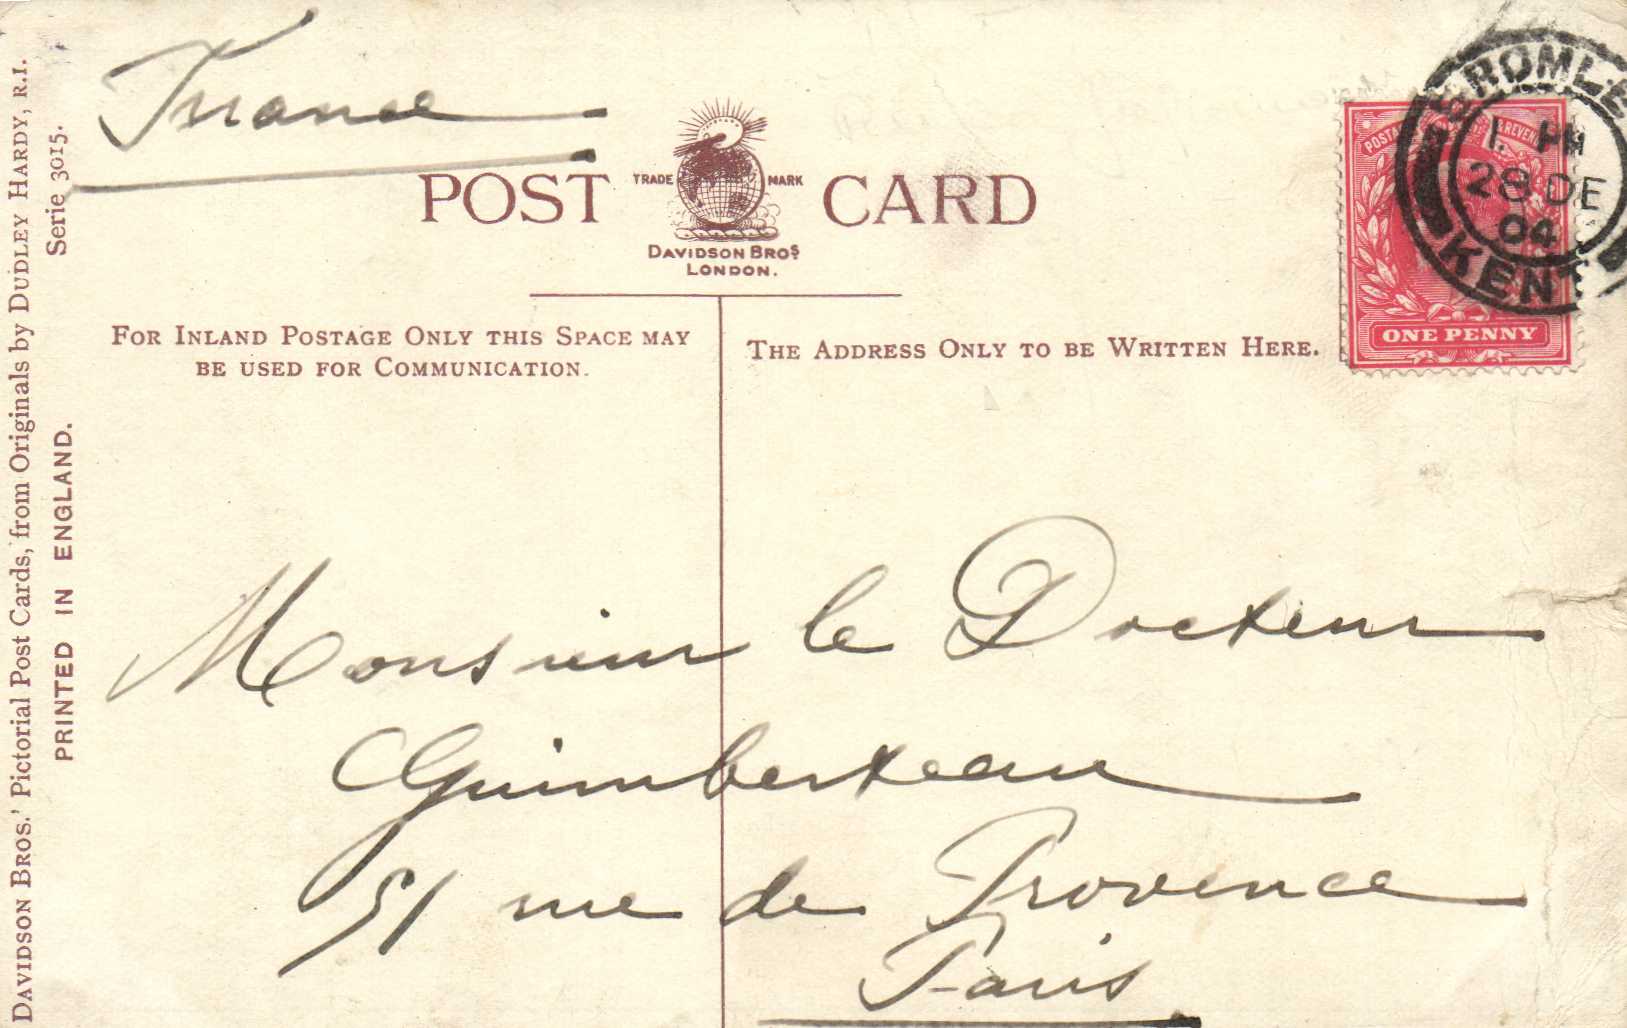 France
POST CARD
TRADE MARK
DAVIDSON BROS.
LONDON.
FOR INLAND POSTAGE ONLY THIS SPACE MAY
BE USED FOR COMMUNICATION.
THE ADDRESS ONLY TO BE WRITTEN HERE.
BROMLE
1. PM
28 DE
04
KENT
POSTAGE & REVENUE
ONE PENNY
Monsieur le Docteur
Guimberteau
51 rue de Provence
Paris
DAVIDSON BROS.' Pictorial Post Cards, from Originals by DUDLEY HARDY, R.I.
Serie 3015.
PRINTED IN ENGLAND.